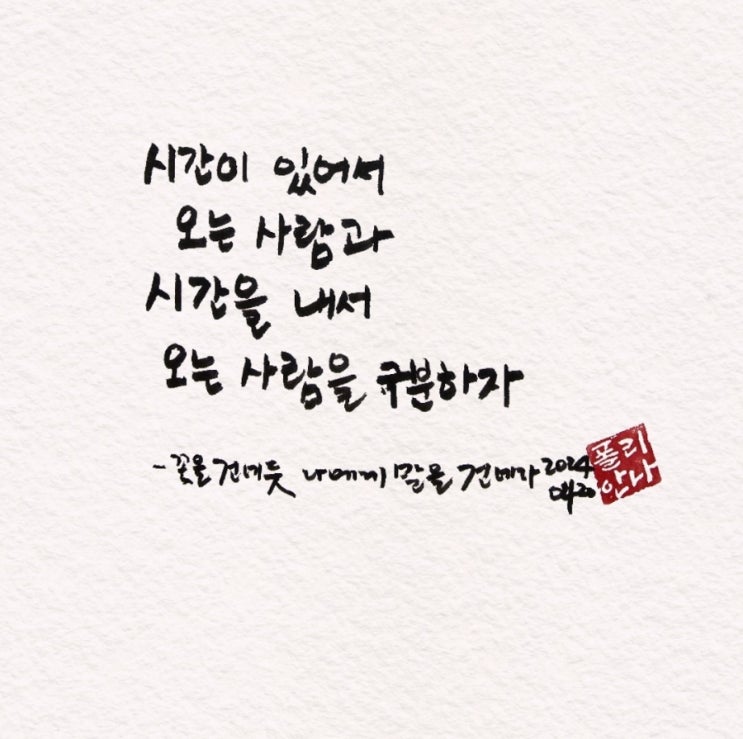 시간이 있어서
오는 사람과
시간을 내서
오는 사람을 구분하자
-꽃을 건네듯 나에게 말을 건네다 2024
0420
폴리
안나